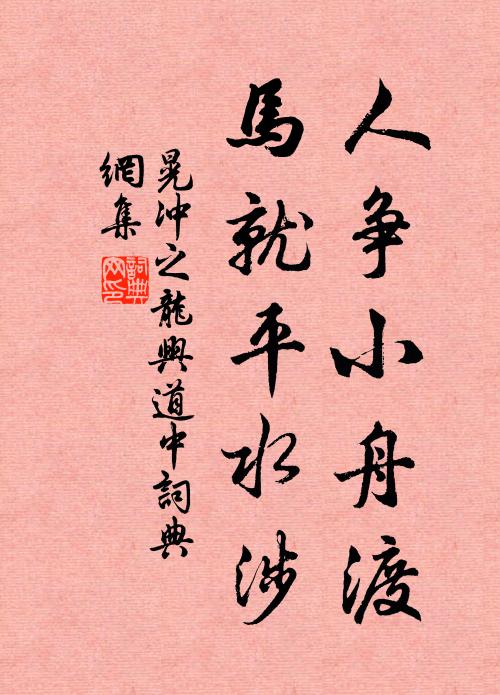 人争小舟渡
馬就平水涉
晃沖之龍興道中詞典
網集
詞典网印